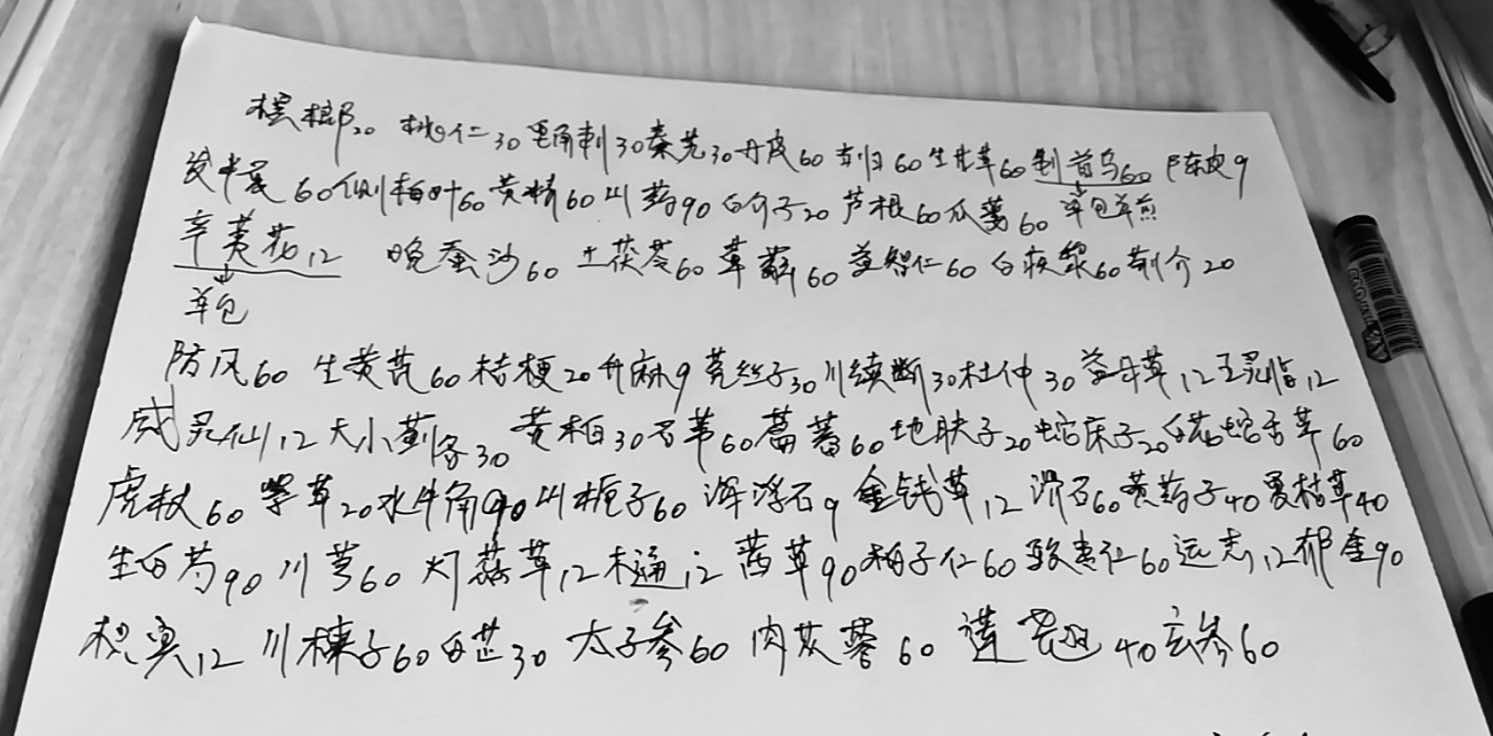 槟榔20 桃仁30 皂角刺30 秦艽30 丹皮60 当归60 生甘草60 制首乌60 陈皮9
法半夏60 侧柏叶60 黄精60 山药90 白介子20 芦根60 瓜蒌60 单包单煎
辛荑花12 晚蚕沙60 土茯苓60 萆薢60 益智仁60 白蒺藜60 荆介20
单包
防风60 生黄芪60 桔梗20 升麻9 菟丝子30 川续断30 杜仲30 益母草12 五灵脂12
威灵仙12 大小蓟各30 黄柏30 石苇60 萹蓄60 地肤子20 蛇床子20 白花蛇舌草60
虎杖60 紫草20 水牛角90 山栀子60 浮石9 金钱草12 滑石60 黄药子40 夏枯草40
生白芍90 川芎60 灯芯草12 木通12 茜草90 柏子仁60 酸枣仁60 远志12 郁金90
枳实12 川楝子60 白芷30 太子参60 肉苁蓉60 连翘40 玄参60